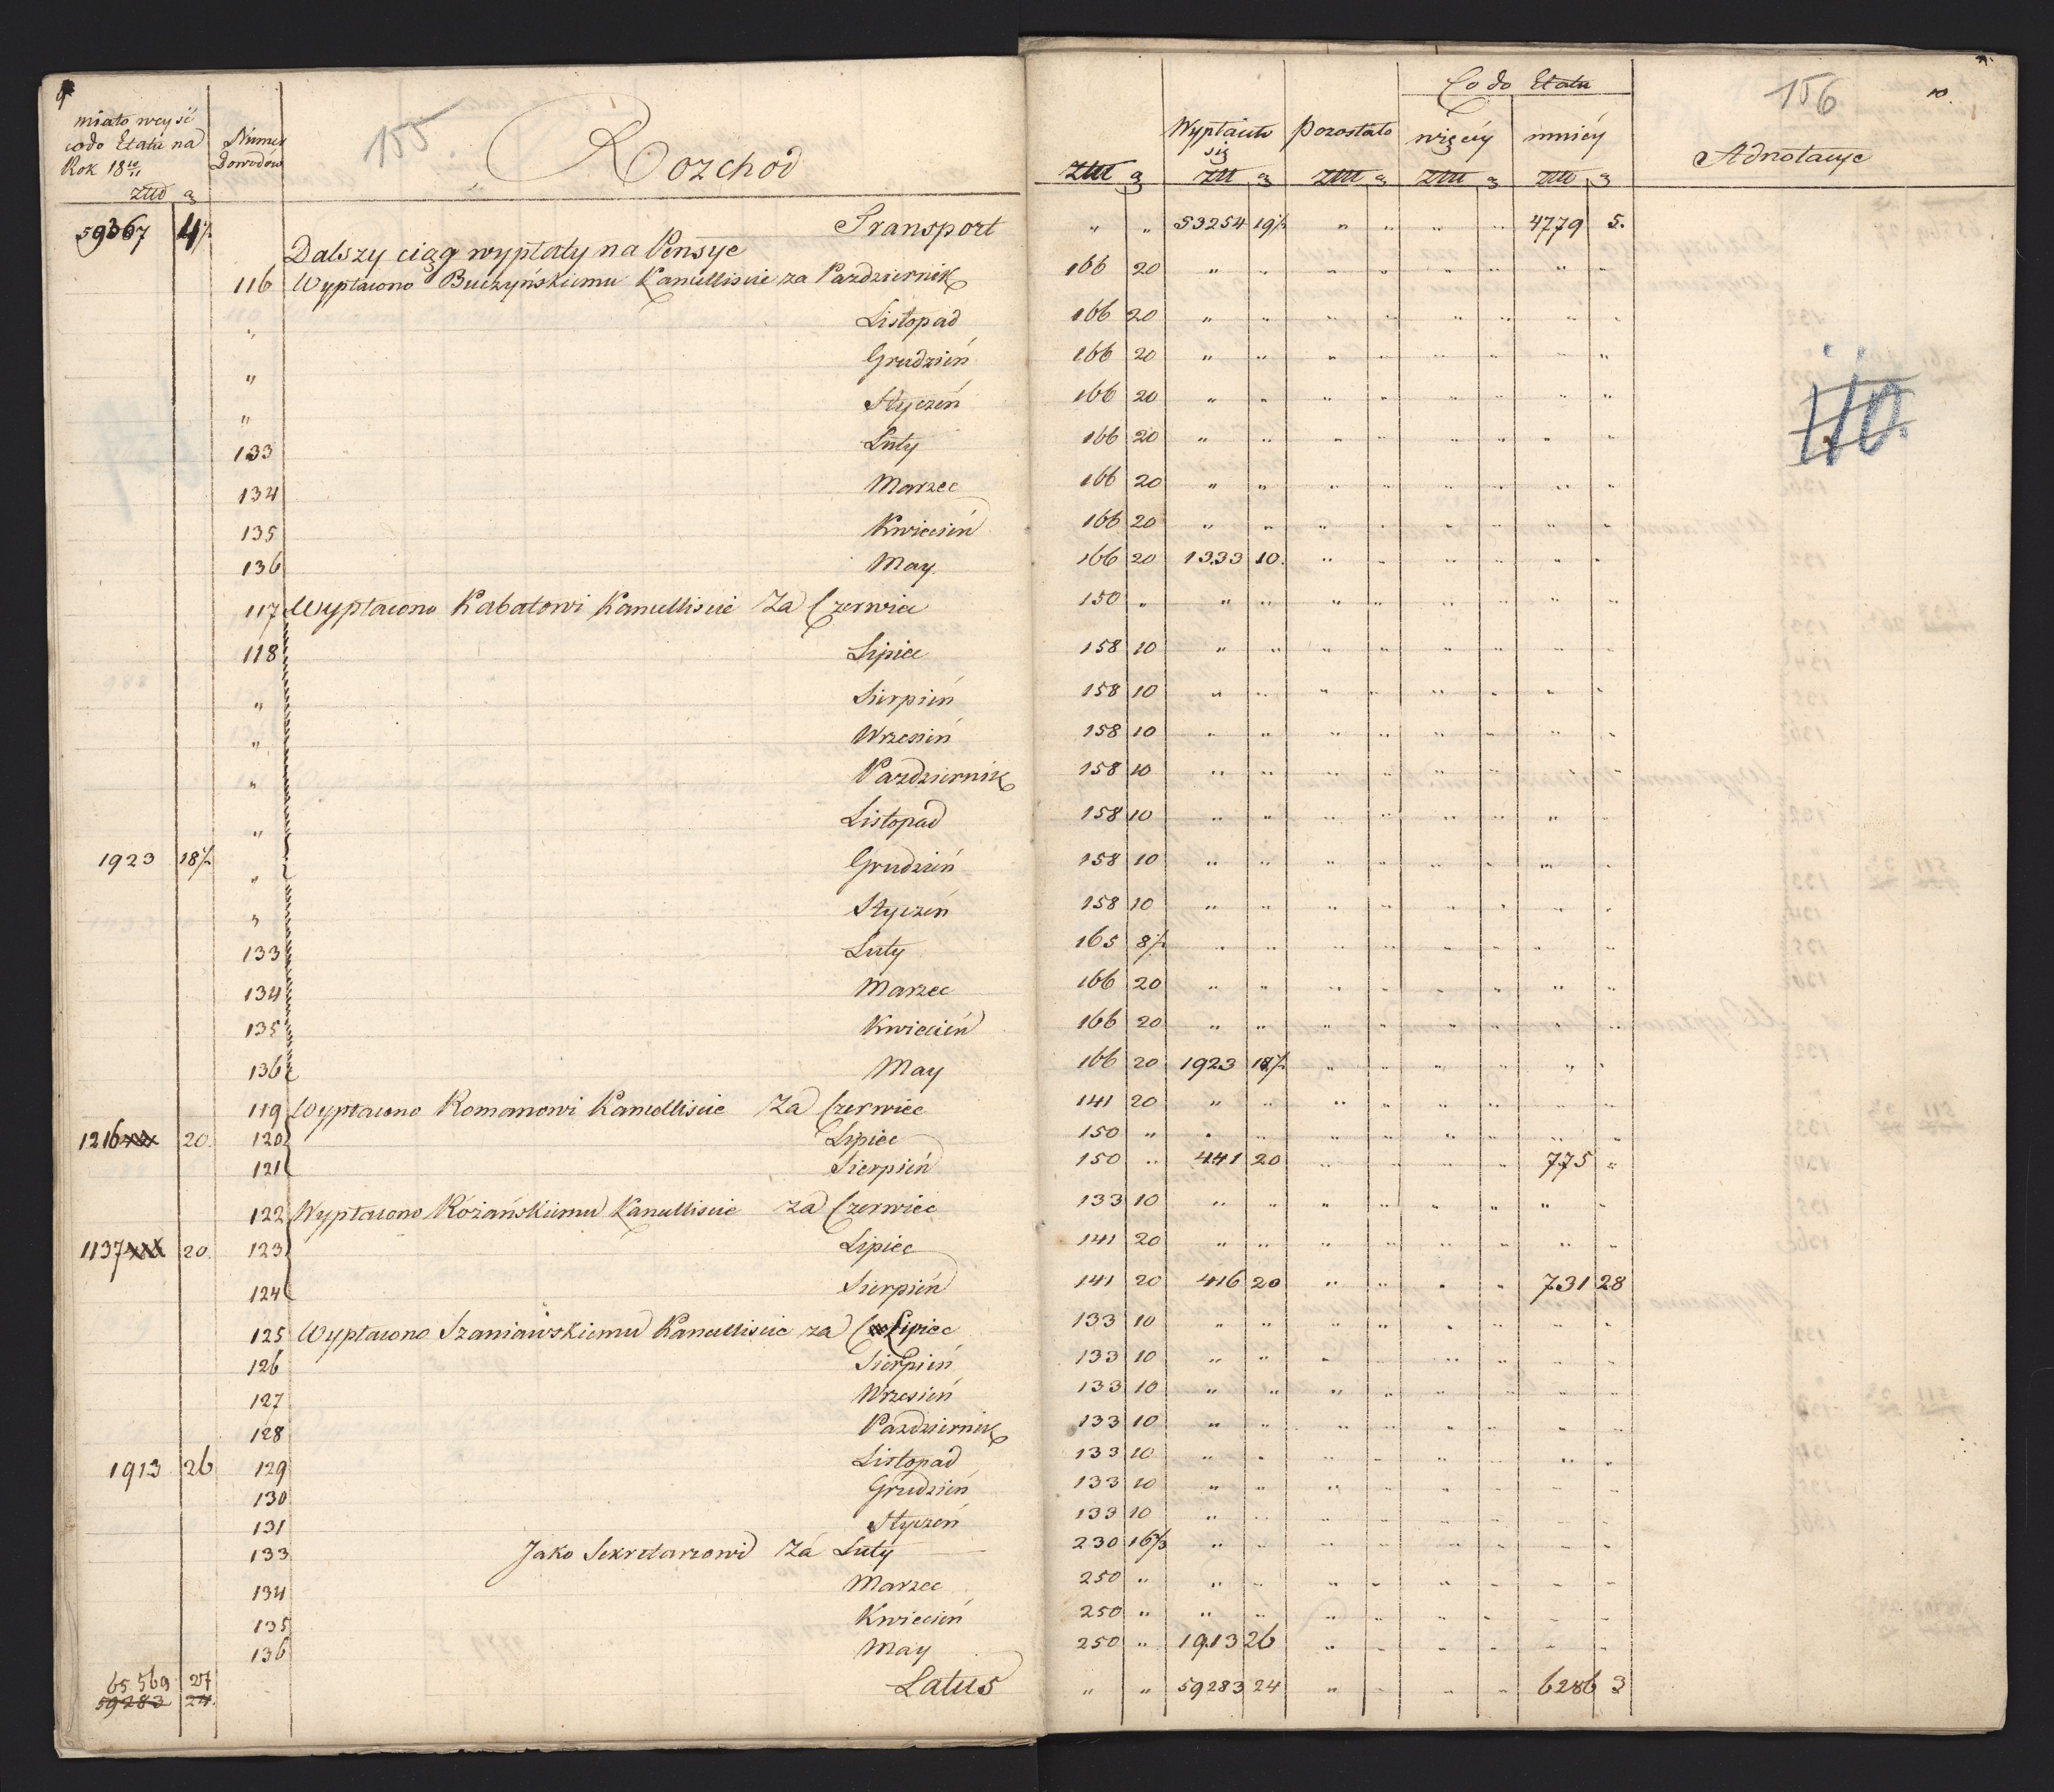 9
miało weyść
co do Etatu na
Rok 18 10/11
Złld g
Numer
Dowodów
155
Rozchod
Wypłaciło
się
Pozostało
Co do Etatu
więcéy
mniéy
156
10.
Adnotacye
Złll g Złl g Złll g Złll g Złld g
59367 4 1/2 Transport " " 53254 19 1/2 " " " " 4779 5.
Dalszy ciąg wypłaty na Pensye
116 Wypłacono Buczyńskiemu Kancelliście za Pazdziernik 166 20 " " " " " " " "
" Listopad 166 20 " " " " " " " "
" Grudzień 166 20 " " " " " " " "
" Styczeń 166 20 " " " " " " " "
110.
133 Luty 166 20 " " " " " " " "
134 Marzec 166 20 " " " " " " " "
135 Kwiecień 166 20 " " " " " " " "
136 May 166 20 1333 10. " " " " " "
117 Wypłacono Kabatowi Kancelliście Za Czerwiec 150 " " " " " " " " "
118 Lipiec 158 10 " " " " " " " "
" Sierpień 158 10 " " " " " " " "
" Wrzesień 158 10 " " " " " " " "
" Pazdziernik 158 10 " " " " " " " "
" Listopad 158 10 " " " " " " " "
1923 18 1/2 " Grudzień 158 10 " " " " " " " "
" Styczeń 158 10 " " " " " " " "
133 Luty 165 8 1/2 " " " " " " " "
134 Marzec 166 20 " " " " " " " "
135 Kwiecień 166 20 " " " " " " " "
136 May 166 20 1923 18 1/2 " " " " " "
119 Wypłacono Romanowi Kancelliście Za Czerwiec 141 20 " " " " " " " "
1216 20. 120 Lipiec 150 " " " " " " " " "
121 Sierpień 150 " 441 20 " " " " 775 "
122 Wypłacono Różańskiemu Kancelliście za Czerwiec 133 10 " " " " " " " "
1137 20. 123 Lipiec 141 20 " " " " " " " "
124 Sierpień 141 20 416 20 " " " " 731 28
125 Wypłacono Szaniawskiemu Kancelliście za Lipiec 133 10 " " " " " " " "
126 Sierpień 133 10 " " " " " " " "
127 Wrzesień 133 10 " " " " " " " "
128 Pazdziernik 133 10 " " " " " " " "
1913 26 129 Listopad 133 10 " " " " " " " "
130 Grudzień 133 10 " " " " " " " "
131 Styczeń 133 10 " " " " " " " "
133 Jako Sekretarzowi Za Luty 230 16 2/3 " " " " " " " "
134 Marzec 250 " " " " " " " " "
135 Kwiecień 250 " " " " " " " " "
136 May 250 " 1913 26 " " " " " "
65569 27 Latus " " 59283 24 " " " " 6286 3
59283 24.